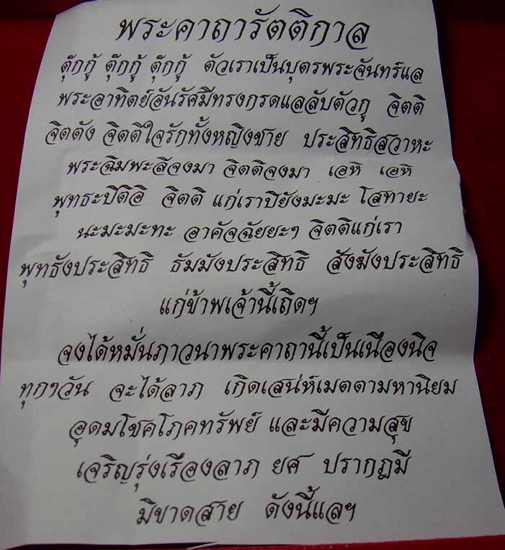 พระคาถารัตติกาล
ตุ๊กกู้ ตุ๊กกู้ ตุ๊กกู้ ตัวเราเป็นบุตรพระจันทร์แล
พระอาทิตย์อันรัศมีทรงกรดแลลับตัวกู จิตติ
จิตตัง จิตติใจรักทั้งหญิงชาย ประสิทธิสวาหะ
พระฉิมพะลีจงมา จิตติจงมา เอหิ เอหิ
พุทธะปิติอิ จิตติ แก่เราปิยังมะมะ โสทายะ
นะมะมะทะ อาคัจฉัยยะๆ จิตติแก่เรา
พุทธังประสิทธิ ธัมมังประสิทธิ สังฆังประสิทธิ
แก่ข้าพเจ้านี้เถิดฯ
จงได้หมั่นภาวนาพระคาถานี้เป็นเนืองนิจ
ทุกๆวัน จะได้ลาภ เกิดเสน่ห์เมตตามหานิยม
อุดมโชคโภคทรัพย์ และมีความสุข
เจริญรุ่งเรืองลาภ ยศ ปรากฏมี
มิขาดสาย ดังนี้แลฯ